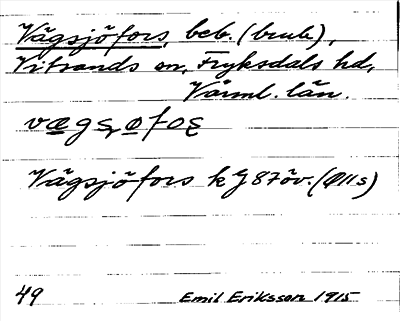 Vägsjöfors, beb. (bruk),
Vitsands sn, Fryksdals hd,
Värml. län.
Vägsjöfors k G 87 öv. (Ø11s)
49 Emil Eriksson 1915